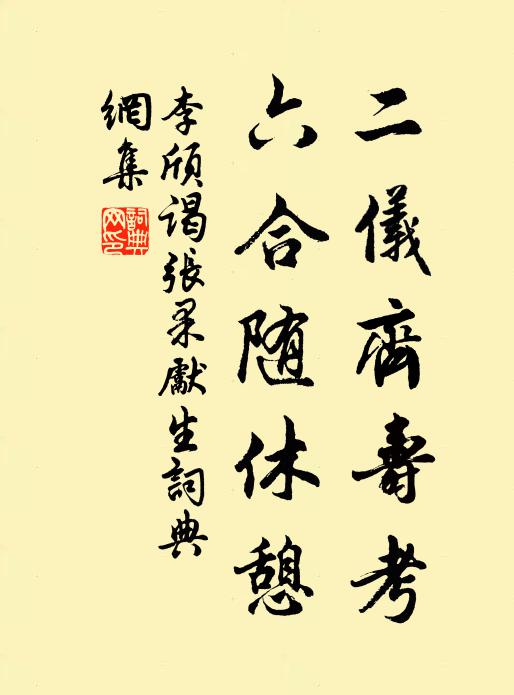 二儀齊壽考
六合随休憩
李頎謁張果獻生詞典
網集
詞典網印